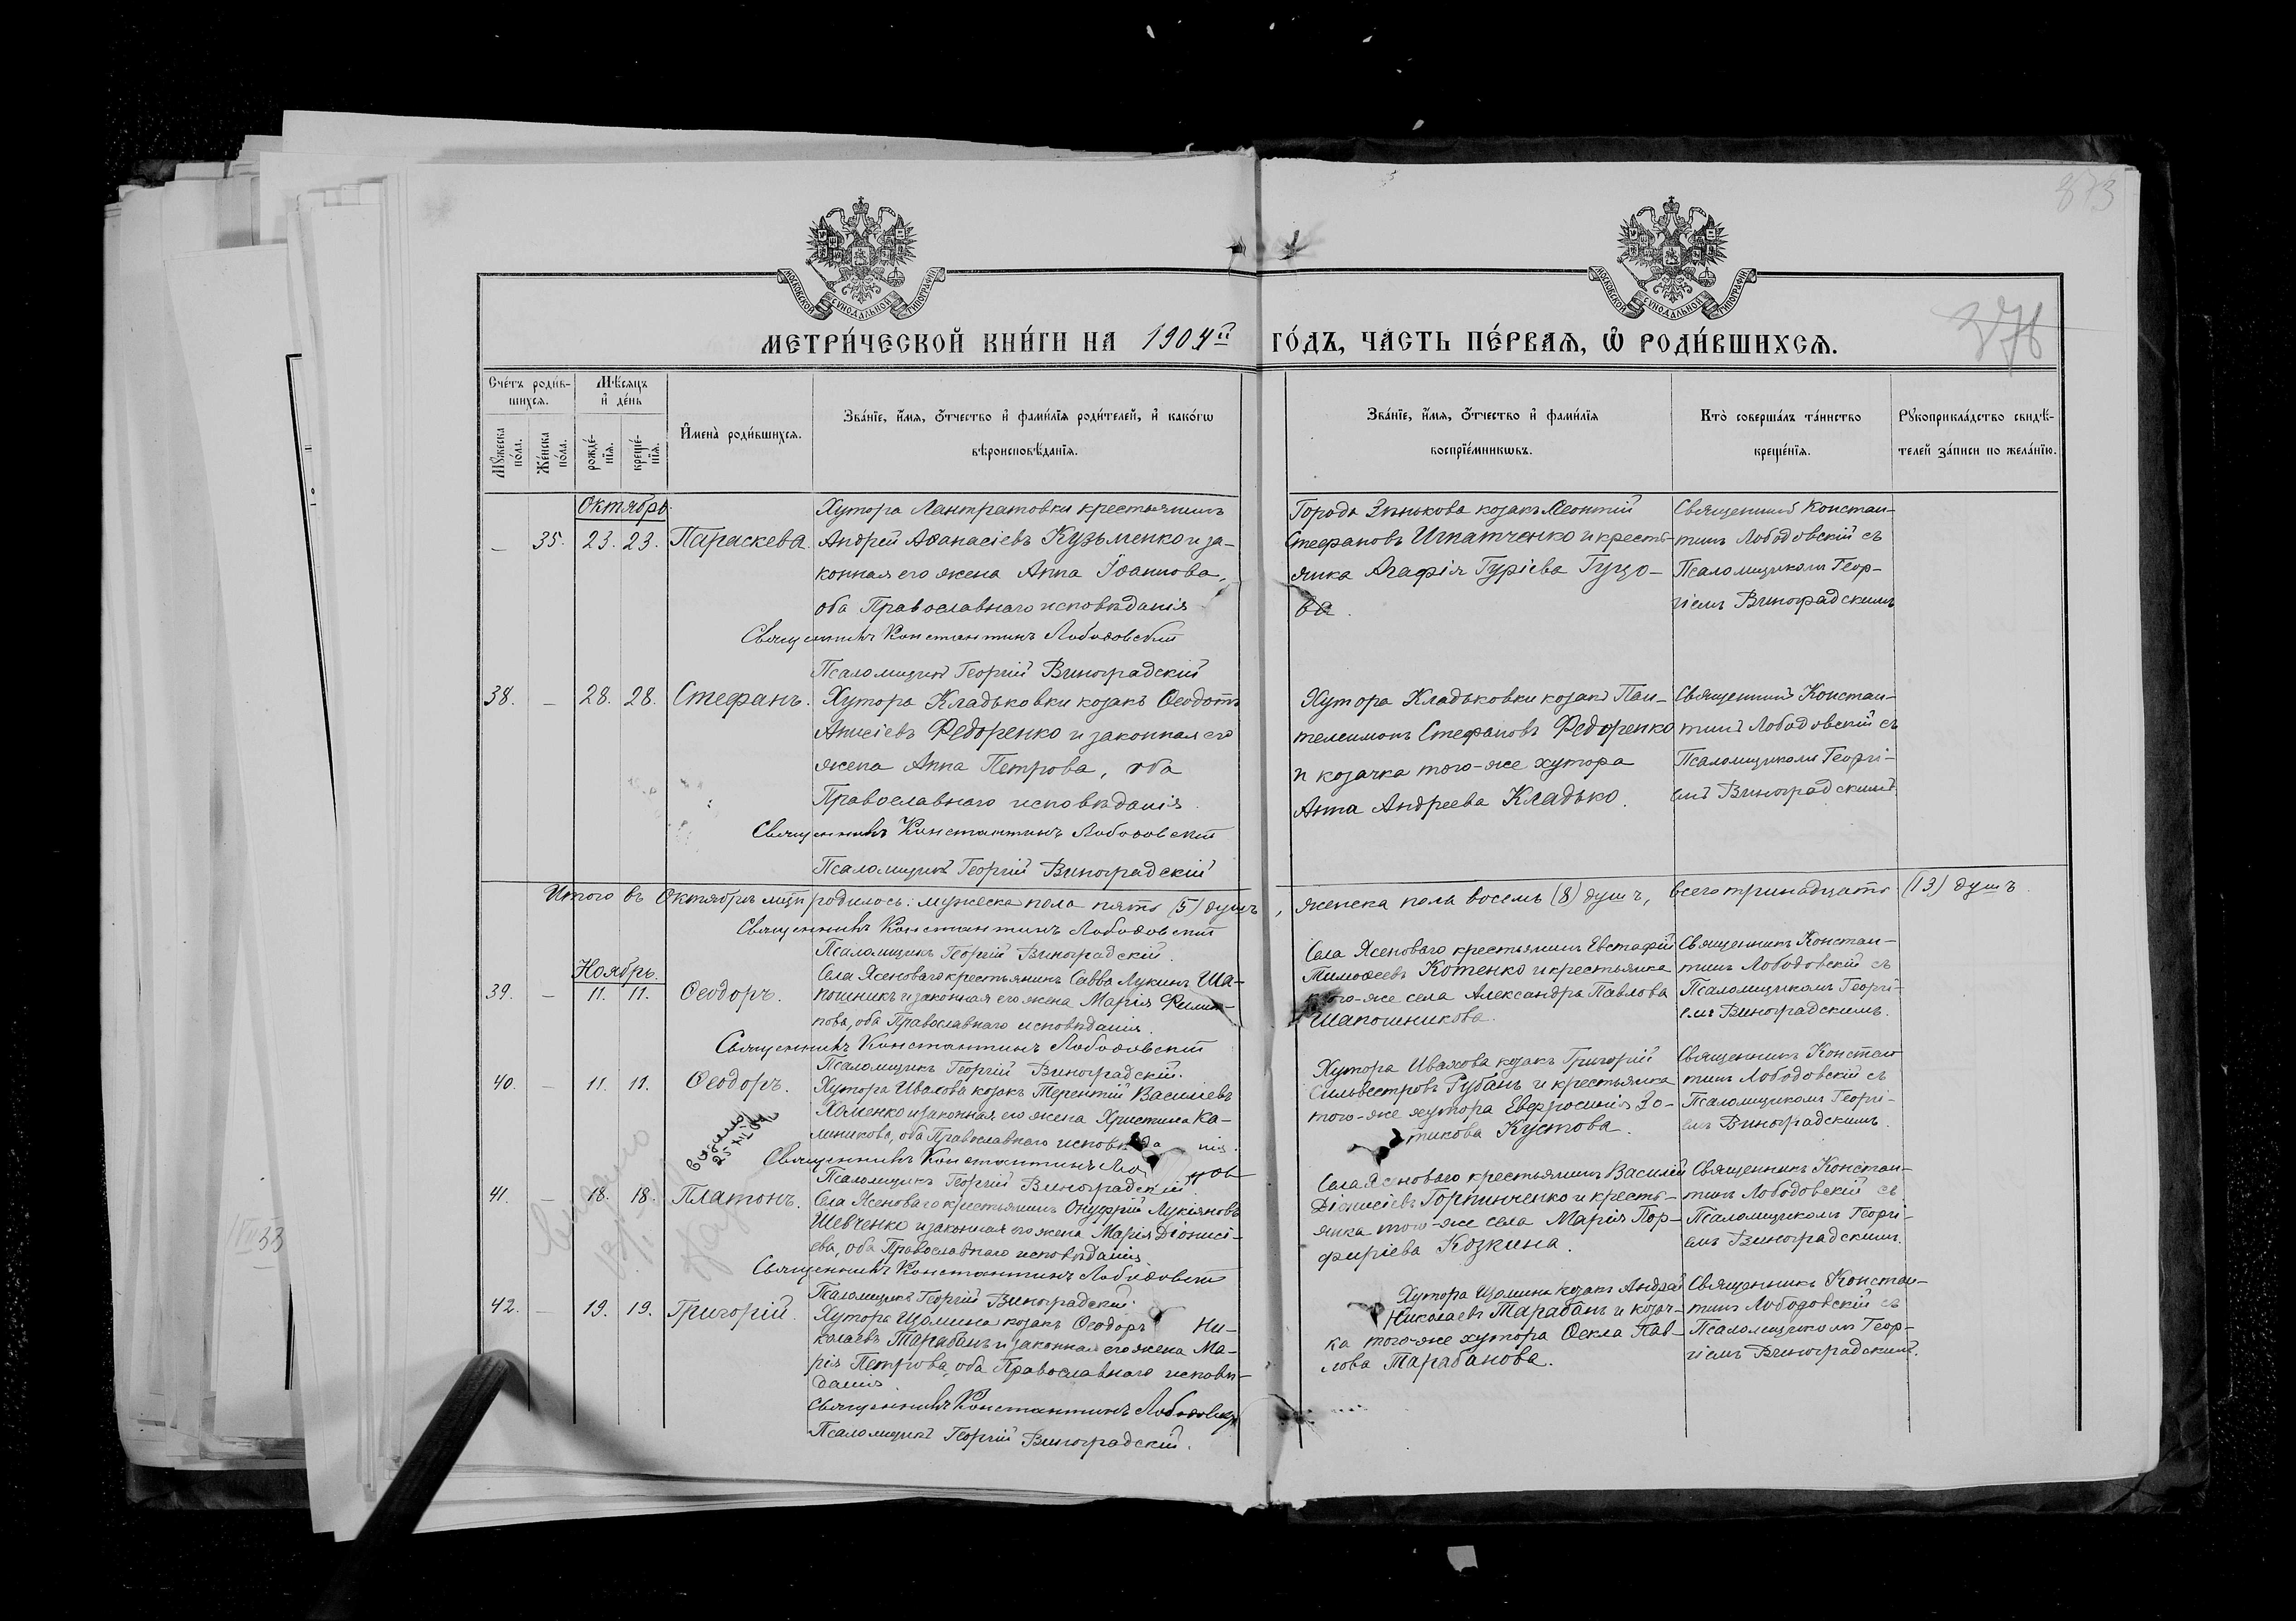 МОСКОВСКОЙ СУНОДАЛЬНОЙ ТИПОГРАФІИ
МОСКОВСКОЙ СУНОДАЛЬНОЙ ТИПОГРАФІИ
МЕТРИ́ЧЕСКОЙ КНИ́ГИ НА 1904й ГО́ДЪ, ЧА́СТЬ ПЕ́РВАѦ, Ѡ РОДИ́ВШИХСѦ.
376
373
Сче́тъ роди́в-
шихсѧ.
Мѣ́сѧцъ
и҆ де́нь
Мꙋ́жеска
по́ла.
Же́нска
по́ла.
рожде́-
нїѧ.
креще́-
нїѧ.
И҆мена̀ роди́вшихсѧ.
Зва́нїе, и҆́мѧ, ѻ҆́тчество и҆ фами́лїѧ роди́телей, и҆ како́гѡ
вѣроисповѣ́данїѧ.
Зва́нїе, и҆́мѧ, ѻ҆́тчество и҆ фами́лїѧ
воспрїе́мникѡвъ.
Кто̀ соверша́лъ та́инство
креще́нїѧ.
Рꙋкоприкла́дство свидѣ́-
телей за́писи по жела́нїю.
Октябрь.
– 35. 23. 23. Параскева.
Хутора Лантратовки крестьянинъ
Андрей Аѳанасіевъ Кузьменко и за-
конная его жена Анна Іоаннова,
оба Православнаго исповѣданія
Священникъ Константинъ Лободовскій
Псаломщикъ Георгій Виноградскій
Города Зѣнькова козакъ Леонтій
Стефановъ Игнатченко и кресть-
янка Агафія Гуріева Гуцо-
ва.
Священникъ Констан-
тинъ Лободовскій съ
Псаломщикомъ Геор-
гіемъ Виноградскимъ
38. – 28. 28. Стефанъ.
Хутора Кладьковки козакъ Ѳеодотъ
Анисіевъ Федоренко и законная его
жена Анна Петрова, оба
Православнаго исповѣданія.
Священникъ Константинъ Лободовскій
Псаломщикъ Георгій Виноградскій
Хутора Кладьковки козакъ Пан-
телеимонъ Стефановъ Федоренко
и козачка того-же хутора
Анна Андреева Кладько.
Священникъ Констан-
тинъ Лободовскій съ
Псаломщикомъ Георгі-
емъ Виноградскимъ.
Итого въ Октябрѣ мцѣ родилось: мужеска пола пять (5) душъ, женска пола восемь (8) душъ, всего тринадцать (13) душъ.
Священникъ Константинъ Лободовскій
Псаломщикъ Георгій Виноградскій.
Ноябрь.
39. – 11. 11. Ѳеодоръ.
Села Ясеноваго крестьянинъ Савва Лукинъ Ша-
пошникъ и законная его жена Марія Филип-
пова, оба Православнаго исповѣданія.
Священникъ Константинъ Лободовскій
Псаломщикъ Георгій Виноградскій.
Села Ясеноваго крестьянинъ Евстафій
Тимоѳеевъ Котенко и крестьянка
того-же села Александра Павлова
Шапошникова.
Священникъ Констан-
тинъ Лободовскій съ
Псаломщикомъ Георгі-
емъ Виноградскимъ.
40. – 11. 11. Ѳеодоръ.
Хутора Ивахова козакъ Терентій Василіевъ
Хоменко и законная его жена Христина Ка-
линикова, оба Православнаго исповѣданія.
Священникъ Константинъ
Псаломщикъ Георгій Виноградскій
Хутора Ивахова козакъ Григорій
Сильвестровъ Рубанъ и крестьянка
того-же хутора Евфросинія Зо-
тикова Кустова.
Священникъ Констан
тинъ Лободовскій съ
Псаломщикомъ Георгі-
емъ Виноградскимъ.
41. – 18. 18. Платонъ.
Села Ясеноваго крестьянинъ Онуфрій Лукіяновъ
Шевченко и законная его жена Марія Діонисі-
ева, оба Православнаго исповѣданія
Священникъ Константинъ Лободовскій
Псаломщикъ Георгій Виноградскій.
Села Ясеноваго крестьянинъ Василій
Діонисіевъ Горпинченко и кресть-
янка того-же села Марія Пор-
фиріева Козкина.
Священникъ Констан-
тинъ Лободовскій съ
Псаломщикомъ Георгі-
емъ Виноградскимъ.
42. – 19. 19. Григорій.
Хутора Щомина козакъ Ѳеодоръ Ни-
колаевъ Тарабанъ и законная его жена Ма-
рія Петрова, оба Православнаго исповѣ-
данія.
Священникъ Константинъ Лободовскій
Псаломщикъ Георгій Виноградскій.
Хутора Щомина козакъ Андрей
Николаевъ Тарабанъ и козач-
ка того-же хутора Ѳекла Пав-
лова Тарабанова.
Священникъ Констан-
тинъ Лободовскій съ
Псаломщикомъ Геор-
гіемъ Виноградскимъ.